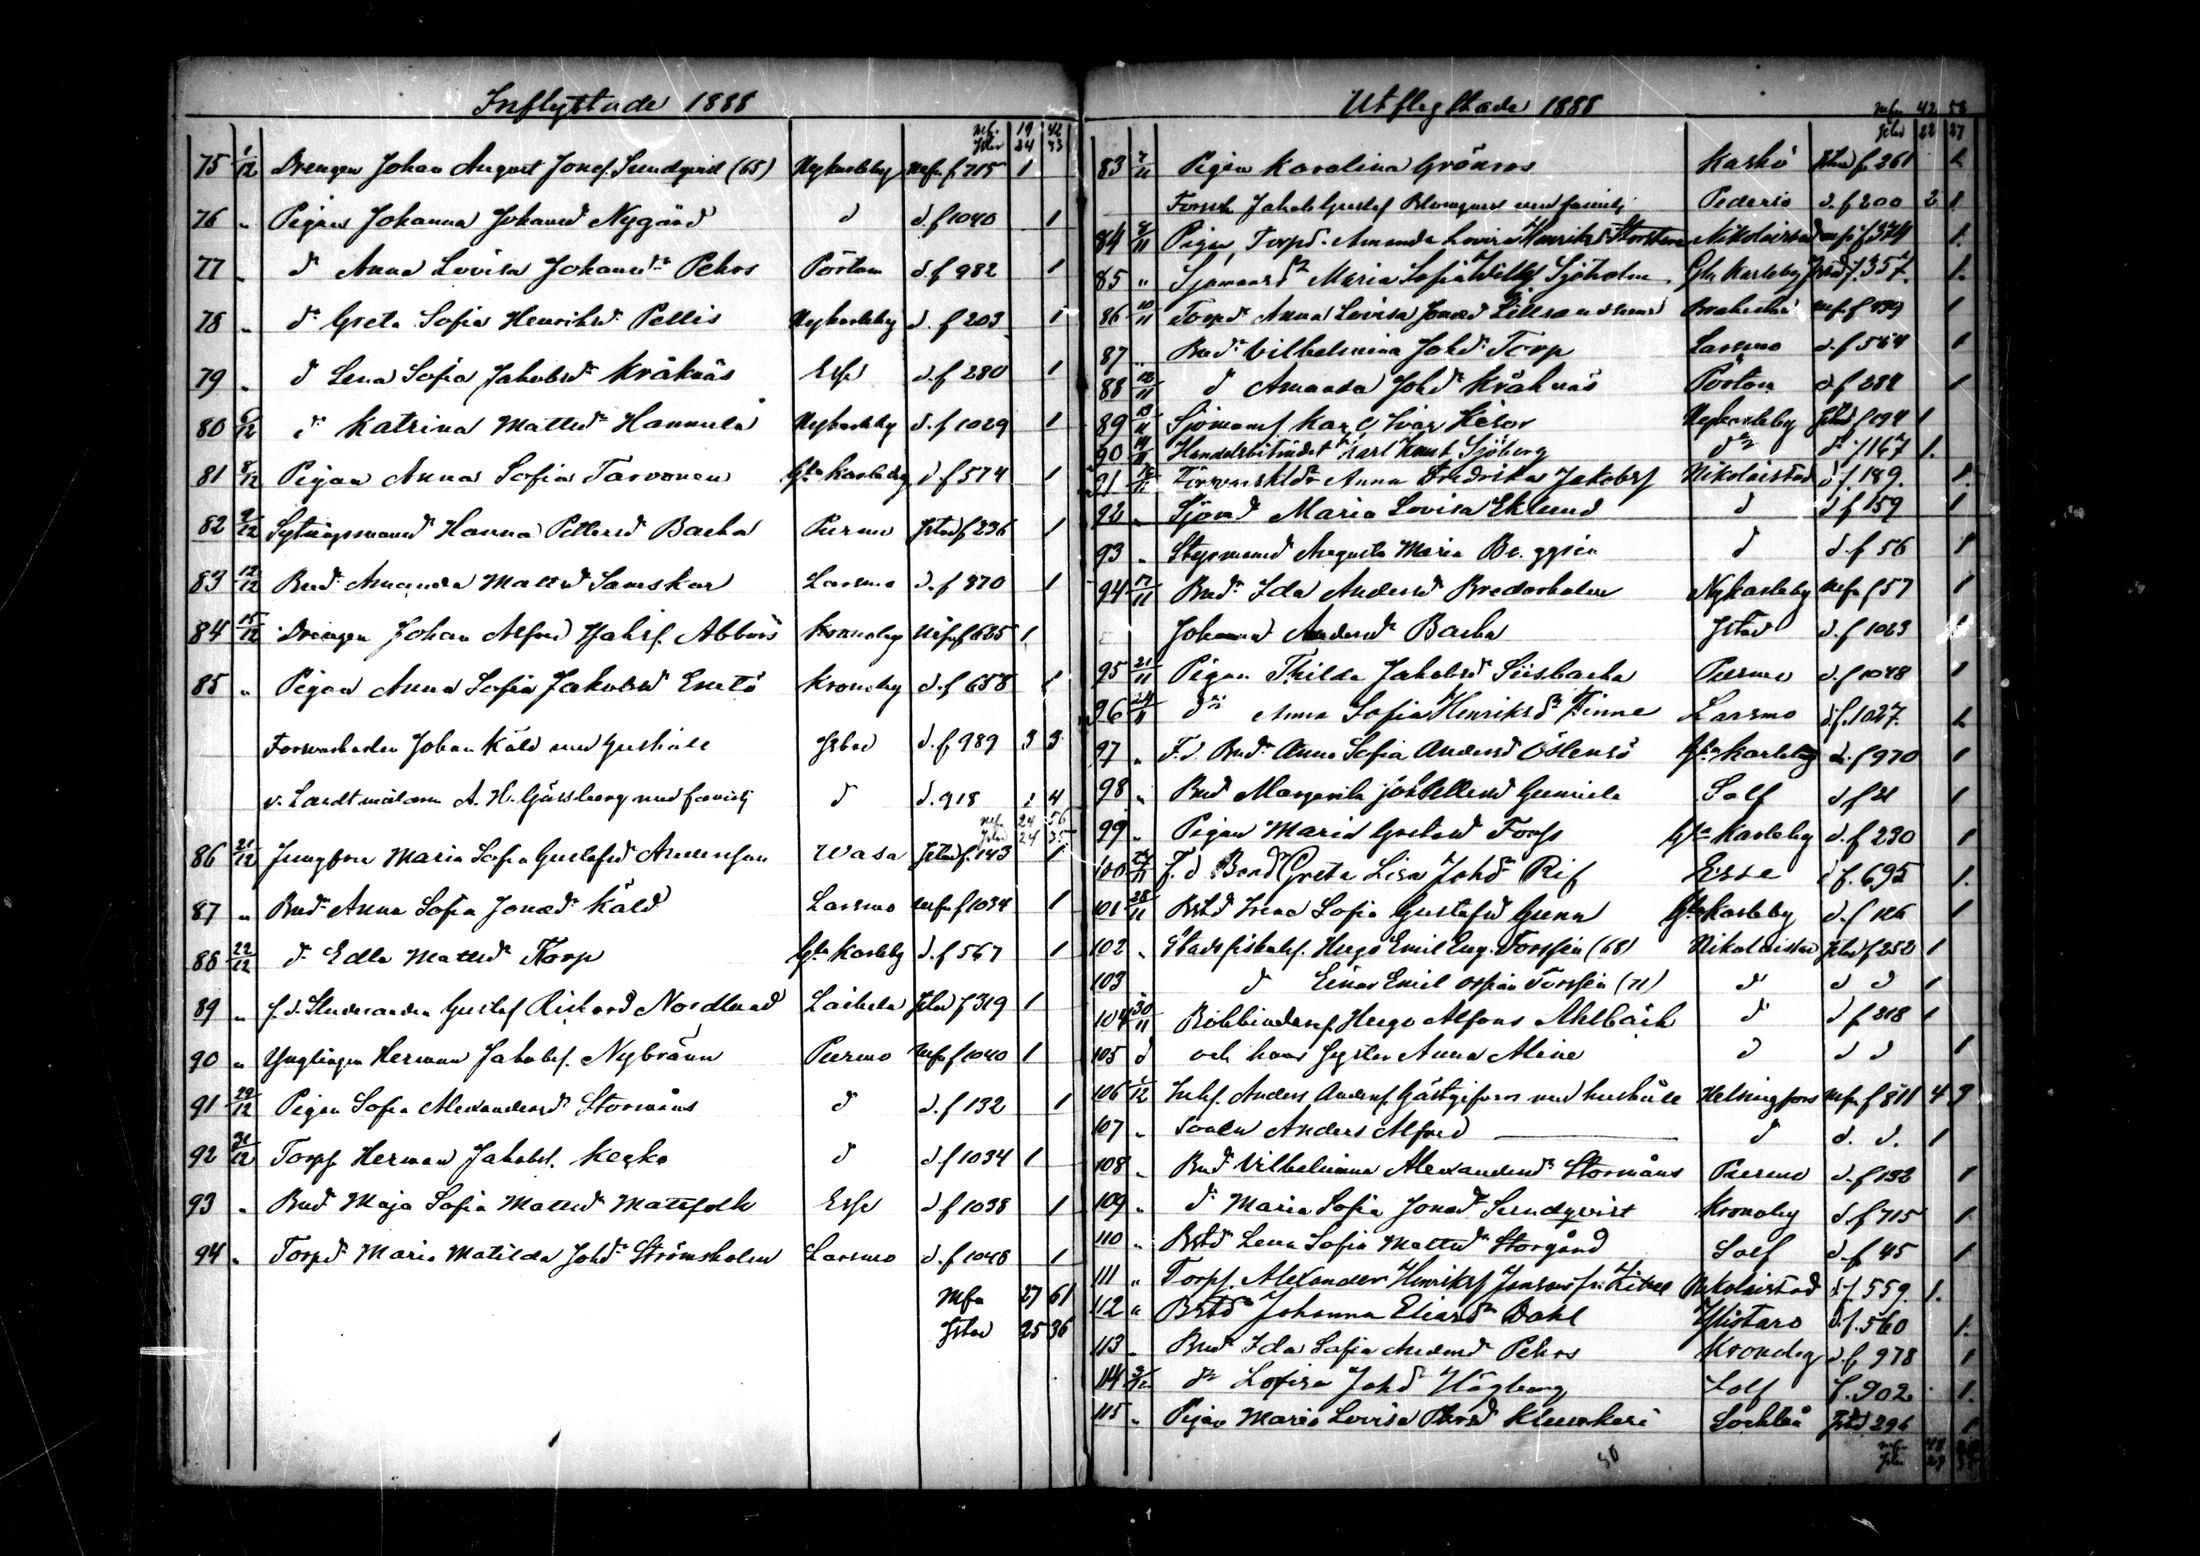 Inflyttade 1888
mfr. 19 42
Jstad 24 33
75 1/12 Drengen Johan August Jonef. Sundqvist (65) Nykarleby mfr f 715 1
76 " Pigan Johanna Johansd Nygård d d. f 1040 1
77 " d:o Anna Lovisa Johansd:r Pehrs Pörtom d. f 982 1
78 " d:o Greta Sofia Henriksd:r Pellis Nykarleby d. f 203 1
79 " d Lena Sofia Jakobsd:r Kråknäs Esse d. f 280 1
80 6/12 d:o Katrina Mattsd:r Hannula Nykarleby d. f 1029 1
81 8/12 Pigan Anna Sofia Tarvonen G:la Karleby d. f 574 1
82 9/12 Sytningsmansd Hanna Pettersd Backa Purmo Jstad f 236 1
83 12/12 Bnd:r Amanda Mattsd Samskar Larsmo d. f 870 1
84 15/12 Drengen Johan Alfred Jakobsf. Abbors Kronoby Mfr f 625 1
85 " Pigan Anna Sofia Jakobsd Enetö Kronoby d. f 658 1
Forsvarskarlen Johan Käld med hushåll Jstad d. f 989 3 3
v. Landtmätaren A. H. Gåsberg med familj d d. 918 1 4
mfr 24 56
Jstad 24 35
86 21/12 Jungfru Maria Sofia Gustafsd Andersson Wasa Jstad f. 143 1
87 " Bnd:r Anna Sofia Jonasd:r Käld Larsmo mfr f 1034 1
88 22/12 d:o Edla Mattsd:r Torp G:la Karleby d. f 567 1
89 " f. d. Studeranden Gustaf Rickard Nordlund Laihela Jstad f 319 1
90 " Ynglingen Herman Jakobsf. Nybränn Purmo Mfr f 1040 1
91 29/12 Pigan Sofia Alexandersd Stormåns d d. f 132 1
92 31/12 Torpf. Herman Jakobsf. Kecko d d. f 1034 1
93 " Bnd Maja Sofia Mattsd:r Matsfolk Esse d. f 1038 1
94 " Torpd:r Maria Matilda Johd:r Strömsholm Larsmo d. f 1048 1
Mfr 27 61
Jstad 25 36
Utflyttade 1888
mfr. 42 58
Jstad 22 27
83 7/11 Pigan Karolina Grönros Kaskö Jstad f. 261 1
Jakob Gustaf Blomqvist med familj Pedersö d. f 200 2 1
84 8/11 Pigan, Torpd. Amanda Lovisa Henriksd Nikolaistad mfr f 374 1
85 " Sjömansd:r Maria Sofia Sjöholm G:la Karleby Jstad f. 357 1
86 10/11 Torpd Anna Lovisa Jonasd Lillsandsund Brahestad mfr f 439 1
87 " Bnd:r Vilhelmina Johd:r Torp Larsmo d. f 564 1
88 12/11 d Amanda Johd:r Kråknäs Pörtom d. f 282 1
89 13/11 Sjömansf Karl Ivar Heber Nykarleby Jstad f 194 1
90 14/11 Handelsbiträdet Karl Knut Sjöberg d:o d:o f 167 1
91 16/11 Anna Fredrika Jakobsf Nikolaistad d. f. 189 1
92 " Sjömd Maria Lovisa Eklund d d f 159 1
93 " Styrmansd Augusta Maria d d. f 56 1
94 17/11 Bnd:r Ida Andersd Bredarholm Nykarleby mfr f 57 1
Johanna Andersd:r Backa Jstad d. f 1023 1
95 21/11 Pigan Thilda Jakobsd Sisbacka Purmo d. f 1048 1
96 24/11 d:o Anna Sofia Henriksd:r Finne Larsmo d. f. 1027 1
97 " F. d. Bnd:r Anna Sofia Andersd Östensö G:la Karleby d. f 970 1
98 " Bnd Margareta Joh Pettersd Gunnila Solf d f 21 1
99 " Pigan Maria Gustavsd Forss G:la Karleby d. f 230 1
100 27/11 F. d. Bond Greta Lisa Johd:r Rif Esse d f. 695 1
101 28/11 Bstd Irene Sofia Gustafsd Gunn G:la Karleby d. f 126 1
102 " Stadsfiskalsf. Hugo Emil Eug. Forssén (68) Nikolaistad Jstad f 252 1
103 d Einar Emil Ossian Forssén (71) d d d 1
104 30/11 Bokbindaref. Hugo Alfons Ahlbäck d d f 218 1
105 d och hans syster Anna Aline d d d 1
106 1/12 Inhf. Anders Andersf. Gästgifvars med hushåll Helsingfors mfr f 811 4 3
107 " Sonen Anders Alfred d d. d. 1
108 " Bnd Vilhelmina Alexandersd:r Stormåns Purmo d. f 132 1
109 " d:o Maria Sofia Jonasd Sundqvist Kronoby d. f 715 1
110 " Bstd:r Lena Sofia Mattsd:r Storgård Solf d. f 45 1
111 " Torpf. Alexander Henriksf Nikolaistad d. f. 559 1
112 " Bstd:r Johanna Eliasd:r Dahl Ylistaro d. f. 560 1
113 " Bnd:r Ida Sofia Andersd:r Pehrs Kronoby d. f 978 1
114 3/12 d:o Lovisa Johd:r Högberg Solf f. 902 1
115 " Pigan Maria Lovisa Jstd 296 1
mfr
Jstad